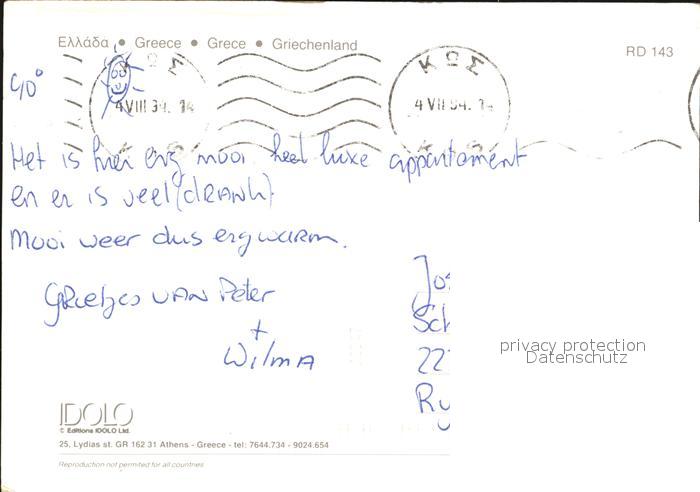 Ελλάδα • Greece • Grece • Griechenland
RD 143
40°
ΚΩΣ
4 VIII 94. 14
ΚΩΣ
4 VIII 94. 14
Het is hier erg mooi. heel luxe appartament
en er is veel (dRANk)
Mooi weer dus erg warm.
GRoetjes VAN Peter
+
WilmA
Jos
Sch
22
Ry
privacy protection
Datenschutz
IDOLO
© Editions IDOLO Ltd.
25, Lydias st. GR 162 31 Athens - Greece - tel: 7644.734 - 9024.654
Reproduction not permited for all countries